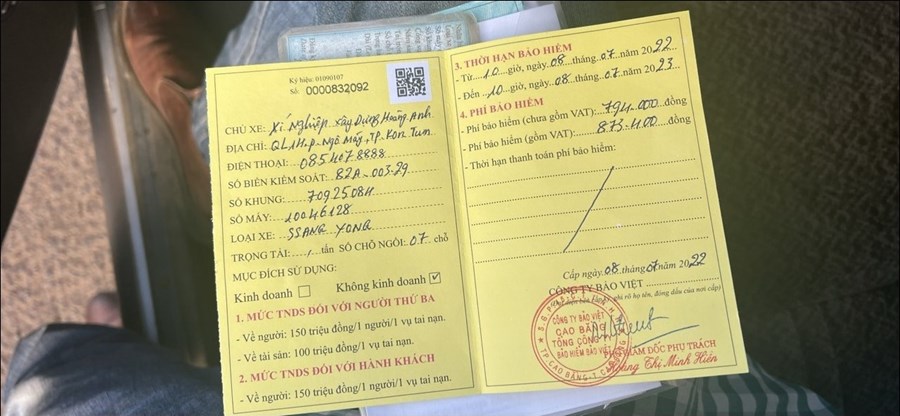 Ký hiệu: 01090107
Số: 0000832092
CHỦ XE: Xí Nghiệp Xây Dựng Hoàng Anh
ĐỊA CHỈ: QL14-P-Ngô Mây, TP. Kon Tum
ĐIỆN THOẠI: 0854078888
SỐ BIỂN KIỂM SOÁT: 82A-003-29
SỐ KHUNG: 7092508H
SỐ MÁY: 10046128
LOẠI XE: SSANG YONG
TRỌNG TẢI: ..../.. tấn SỐ CHỖ NGỒI: 07 chỗ
MỤC ĐÍCH SỬ DỤNG:
Kinh doanh ☐ Không kinh doanh ☑
1. MỨC TNDS ĐỐI VỚI NGƯỜI THỨ BA
- Về người: 150 triệu đồng/1 người/1 vụ tai nạn.
- Về tài sản: 100 triệu đồng/1 vụ tai nạn.
2. MỨC TNDS ĐỐI VỚI HÀNH KHÁCH
- Về người: 150 triệu đồng/1 người/1 vụ tai nạn.
3. THỜI HẠN BẢO HIỂM
- Từ 10 giờ, ngày 08 tháng 07 năm 2022
- Đến 10 giờ, ngày 08 tháng 07 năm 2023
4. PHÍ BẢO HIỂM
- Phí bảo hiểm (chưa gồm VAT): 794.000 đồng
- Phí bảo hiểm (gồm VAT): 873.400 đồng
- Thời hạn thanh toán phí bảo hiểm:
Cấp ngày 08 tháng 07 năm 2022
CÔNG TY BẢO VIỆT
ghi rõ họ tên, đóng dấu của nơi cấp)
CÔNG TY BẢO VIỆT
CAO BẰNG
TỔNG CÔNG TY
BẢO HIỂM BẢO VIỆT
TP CAO BẰNG-T. CAO BẰNG
GIÁM ĐỐC PHỤ TRÁCH
Hoàng Thị Minh Hiền